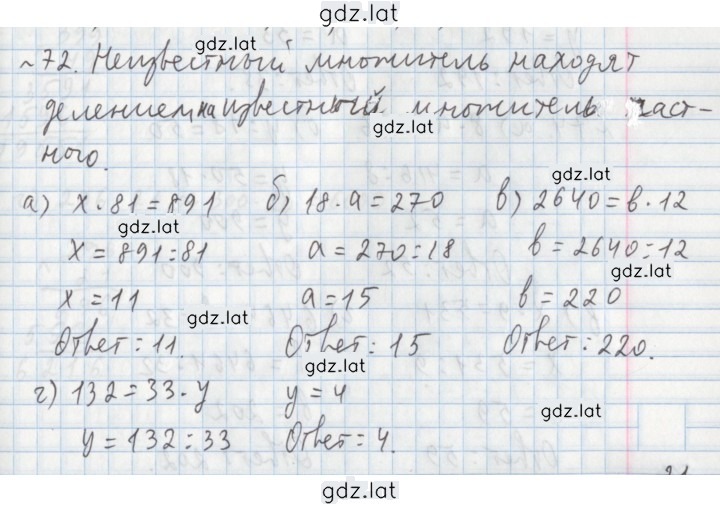 gdz.lat
gdz.lat
№72. Неизвестный множитель находят
делением на известный множитель част-
gdz.lat
ного.
gdz.lat
а) x·81=891 б) 18·a=270 в) 2640=в·12
gdz.lat
x=891:81 a=270:18 в=2640:12
gdz.lat
x=11 a=15 в=220
gdz.lat
Ответ: 11. Ответ: 15 Ответ: 220.
gdz.lat
г) 132=33·y y=4
gdz.lat
y=132:33 Ответ: 4.
gdz.lat